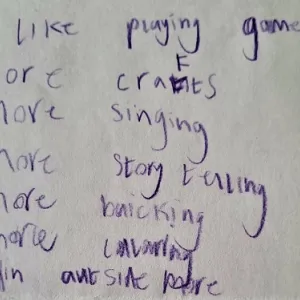 like playing game
ore crafts
more singing
more story telling
more baicking
more
autside more